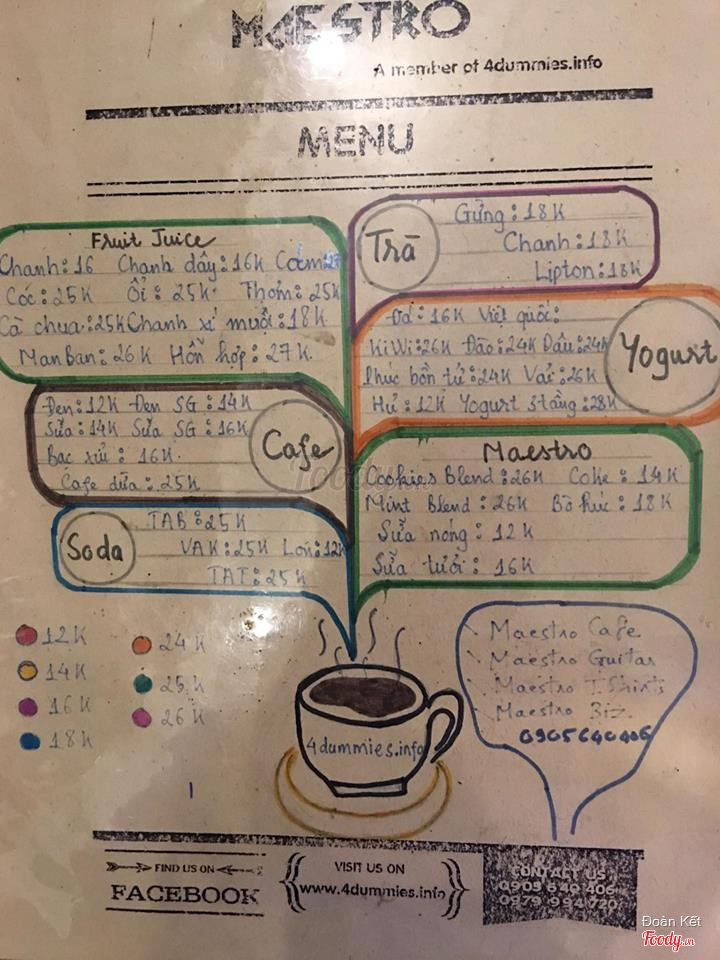 MAESTRO
A member of 4dummies.info
MENU
Fruit Juice
Chanh: 16 Chanh dây: 16K Cam: 27
Cóc: 25K Ổi: 25K Thơm: 25K
Cà chua: 25K Chanh xí muội: 18K
Man Ban: 26K Hỗn hợp: 27K
Trà
Gừng: 18K
Chanh: 18K
Lipton: 18K
Yogurt
Đá: 16K Việt quốc:
KiWi: 26K Đào: 24K Dâu: 24K
Phúc bồn tử: 24K Vải: 26K
Hủ: 12K Yogurt 3 tầng: 28K
Cafe
Đen: 12K Đen SG: 14K
Sữa: 14K Sữa SG: 16K
Bạc xỉu: 16K
Cafe dừa: 25K
Maestro
Cookies Blend: 26K Coke: 14K
Mint Blend: 26K Bò húc: 18K
Sữa nóng: 12K
Sữa tươi: 16K
Soda
TAB: 25K
VAK: 25K Lon: 12K
TAT: 25K
12K
14K
16K
18K
24K
25K
26K
Maestro Cafe
Maestro Guitar
Maestro T.Shirts
Maestro Biz.
0905640406
4dummies.info
FIND US ON
FACEBOOK
VISIT US ON
www.4dummies.info
CONTACT US
0905 640 406
0979 994 720
Đoàn Kết
Foody.vn